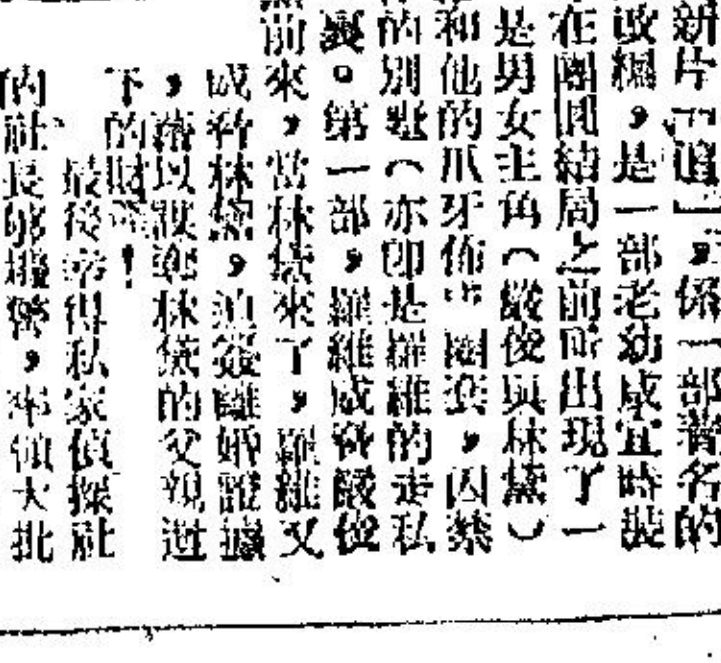 新片「追」,係一部著名的
改編,是一部老幼咸宜時裝
在團圓結局之前所出現了一
是男女主角(嚴俊與林黛)
和他的爪牙佈 圈套,囚禁
的別墅(亦即是羅維的走私
裏。第一部,羅維威脅嚴俊
前來,當林黛來了,羅維又
成脅林黛,迫簽離婚證據
,落以 林黛的父親遊
下的財 !
最後幸得私家偵探社
的社長够機警,率領大批